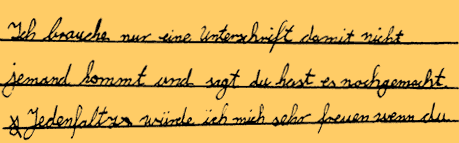 Ich brauche nur eine Unterschrift damit nicht
jemand kommt und sagt du hast es nachgemacht.
Jedenfalls würde ich mich sehr freuen wenn du